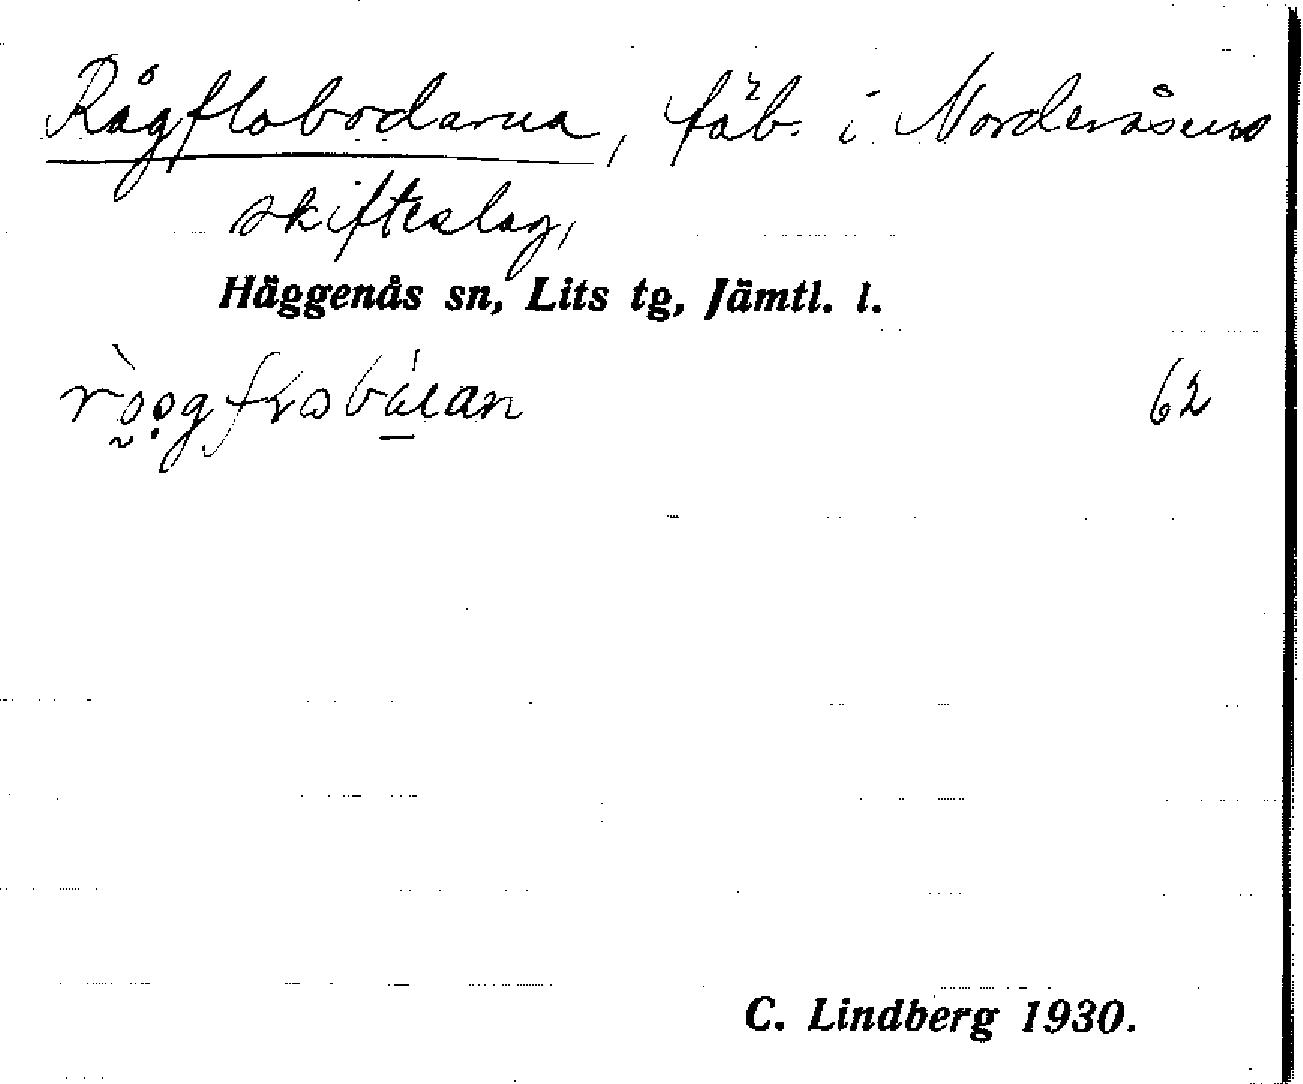 Rågflobodarna, fäb. i Norderåsens
skifteslag,
Häggenås sn, Lits tg, Jämtl. l.
62
C. Lindberg 1930.